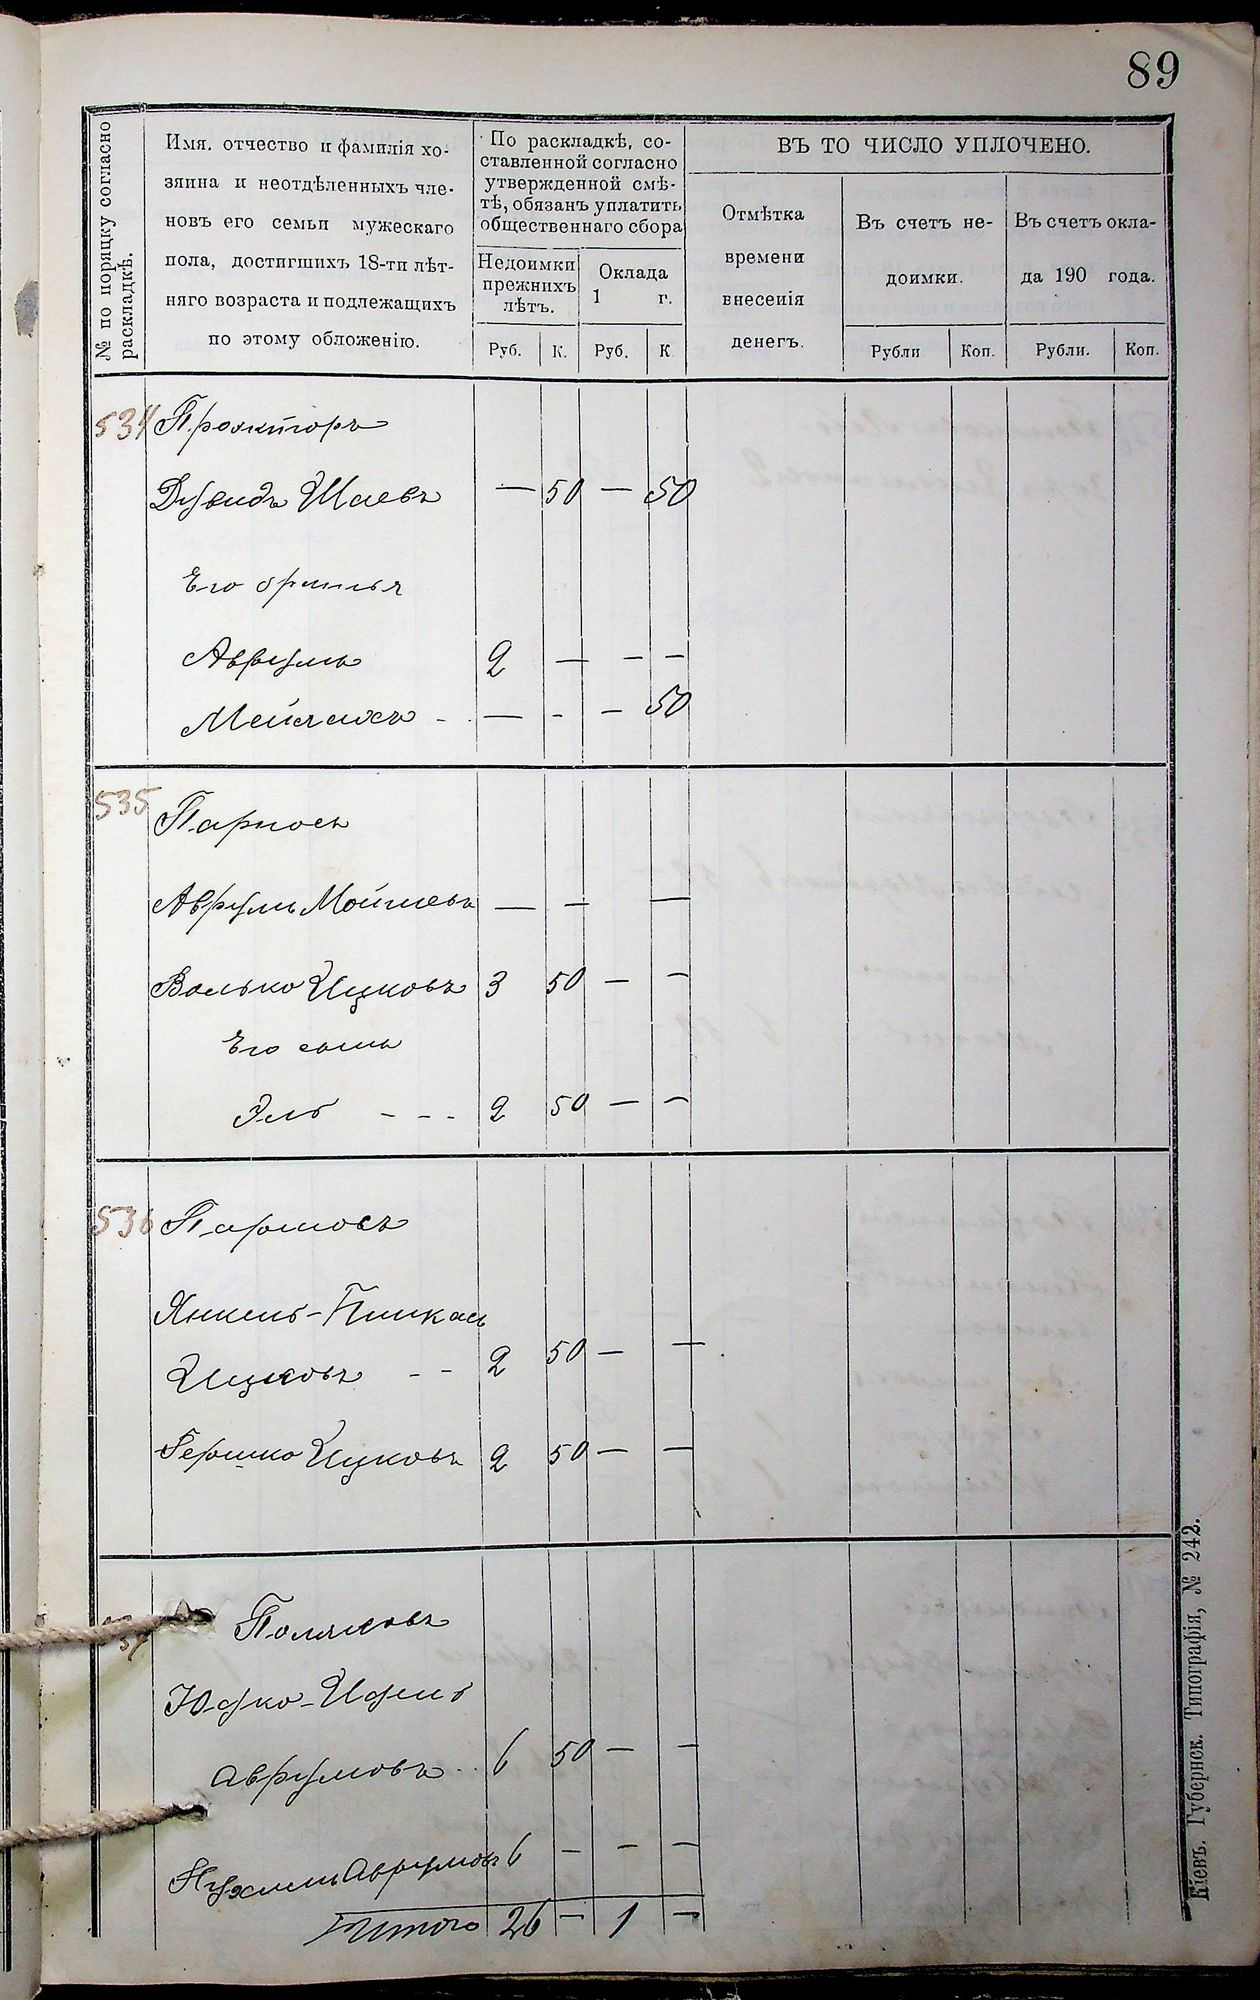 89
№ по поряцку согласно раскладкѣ.
Имя, отчество и фамилія хо-
зяина и неотдѣленныхъ чле-
новъ его семьи мужескаго
пола, достигшихъ 18-ти лѣт-
няго возраста и подлежащихъ
по этому обложенію.
По раскладкѣ, со-
ставленной согласно
утвержденной смѣ-
тѣ, обязанъ уплатить
общественнаго сбора
Недоимки
прежнихъ
лѣтъ.
Оклада
1 г.
Руб. К. Руб. К.
ВЪ ТО ЧИСЛО УПЛОЧЕНО.
Отмѣтка
времени
внесенія
денегъ.
Въ счетъ не-
доимки.
Въ счетъ окла-
да 190 года.
Рубли Коп. Рубли. Коп.
534
Дувидъ Шаевъ — 50 — 50
Его братья
Аврумъ 2 — — —
Мейлахъ - — - — 50
535 Парносъ
Аврумъ Мошковъ — — —
Волько Ицковъ 3 50 — —
Его сынъ
Эль - - - 2 50 — —
536
Янкель-Пинкасъ
Ицковъ - - 2 50 — —
Гершко Ицковъ 2 50 — —
Поляковъ
Юдко-Идель
Аврумовъ 6 50 — —
Нухимъ Аврумовъ 6 — — —
Итого 26 — 1 —
Кіевъ. Губернск. Типографія, № 242.